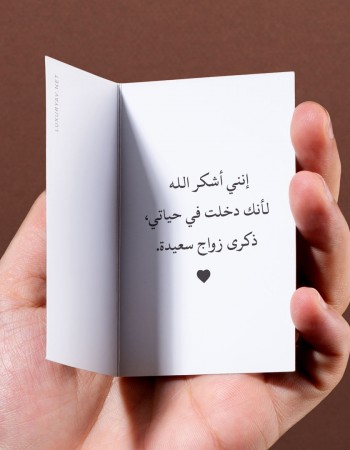 إنني أشكر الله
لأنك دخلت في حياتي،
ذكرى زواج سعيدة.
LUXURYBY.NET